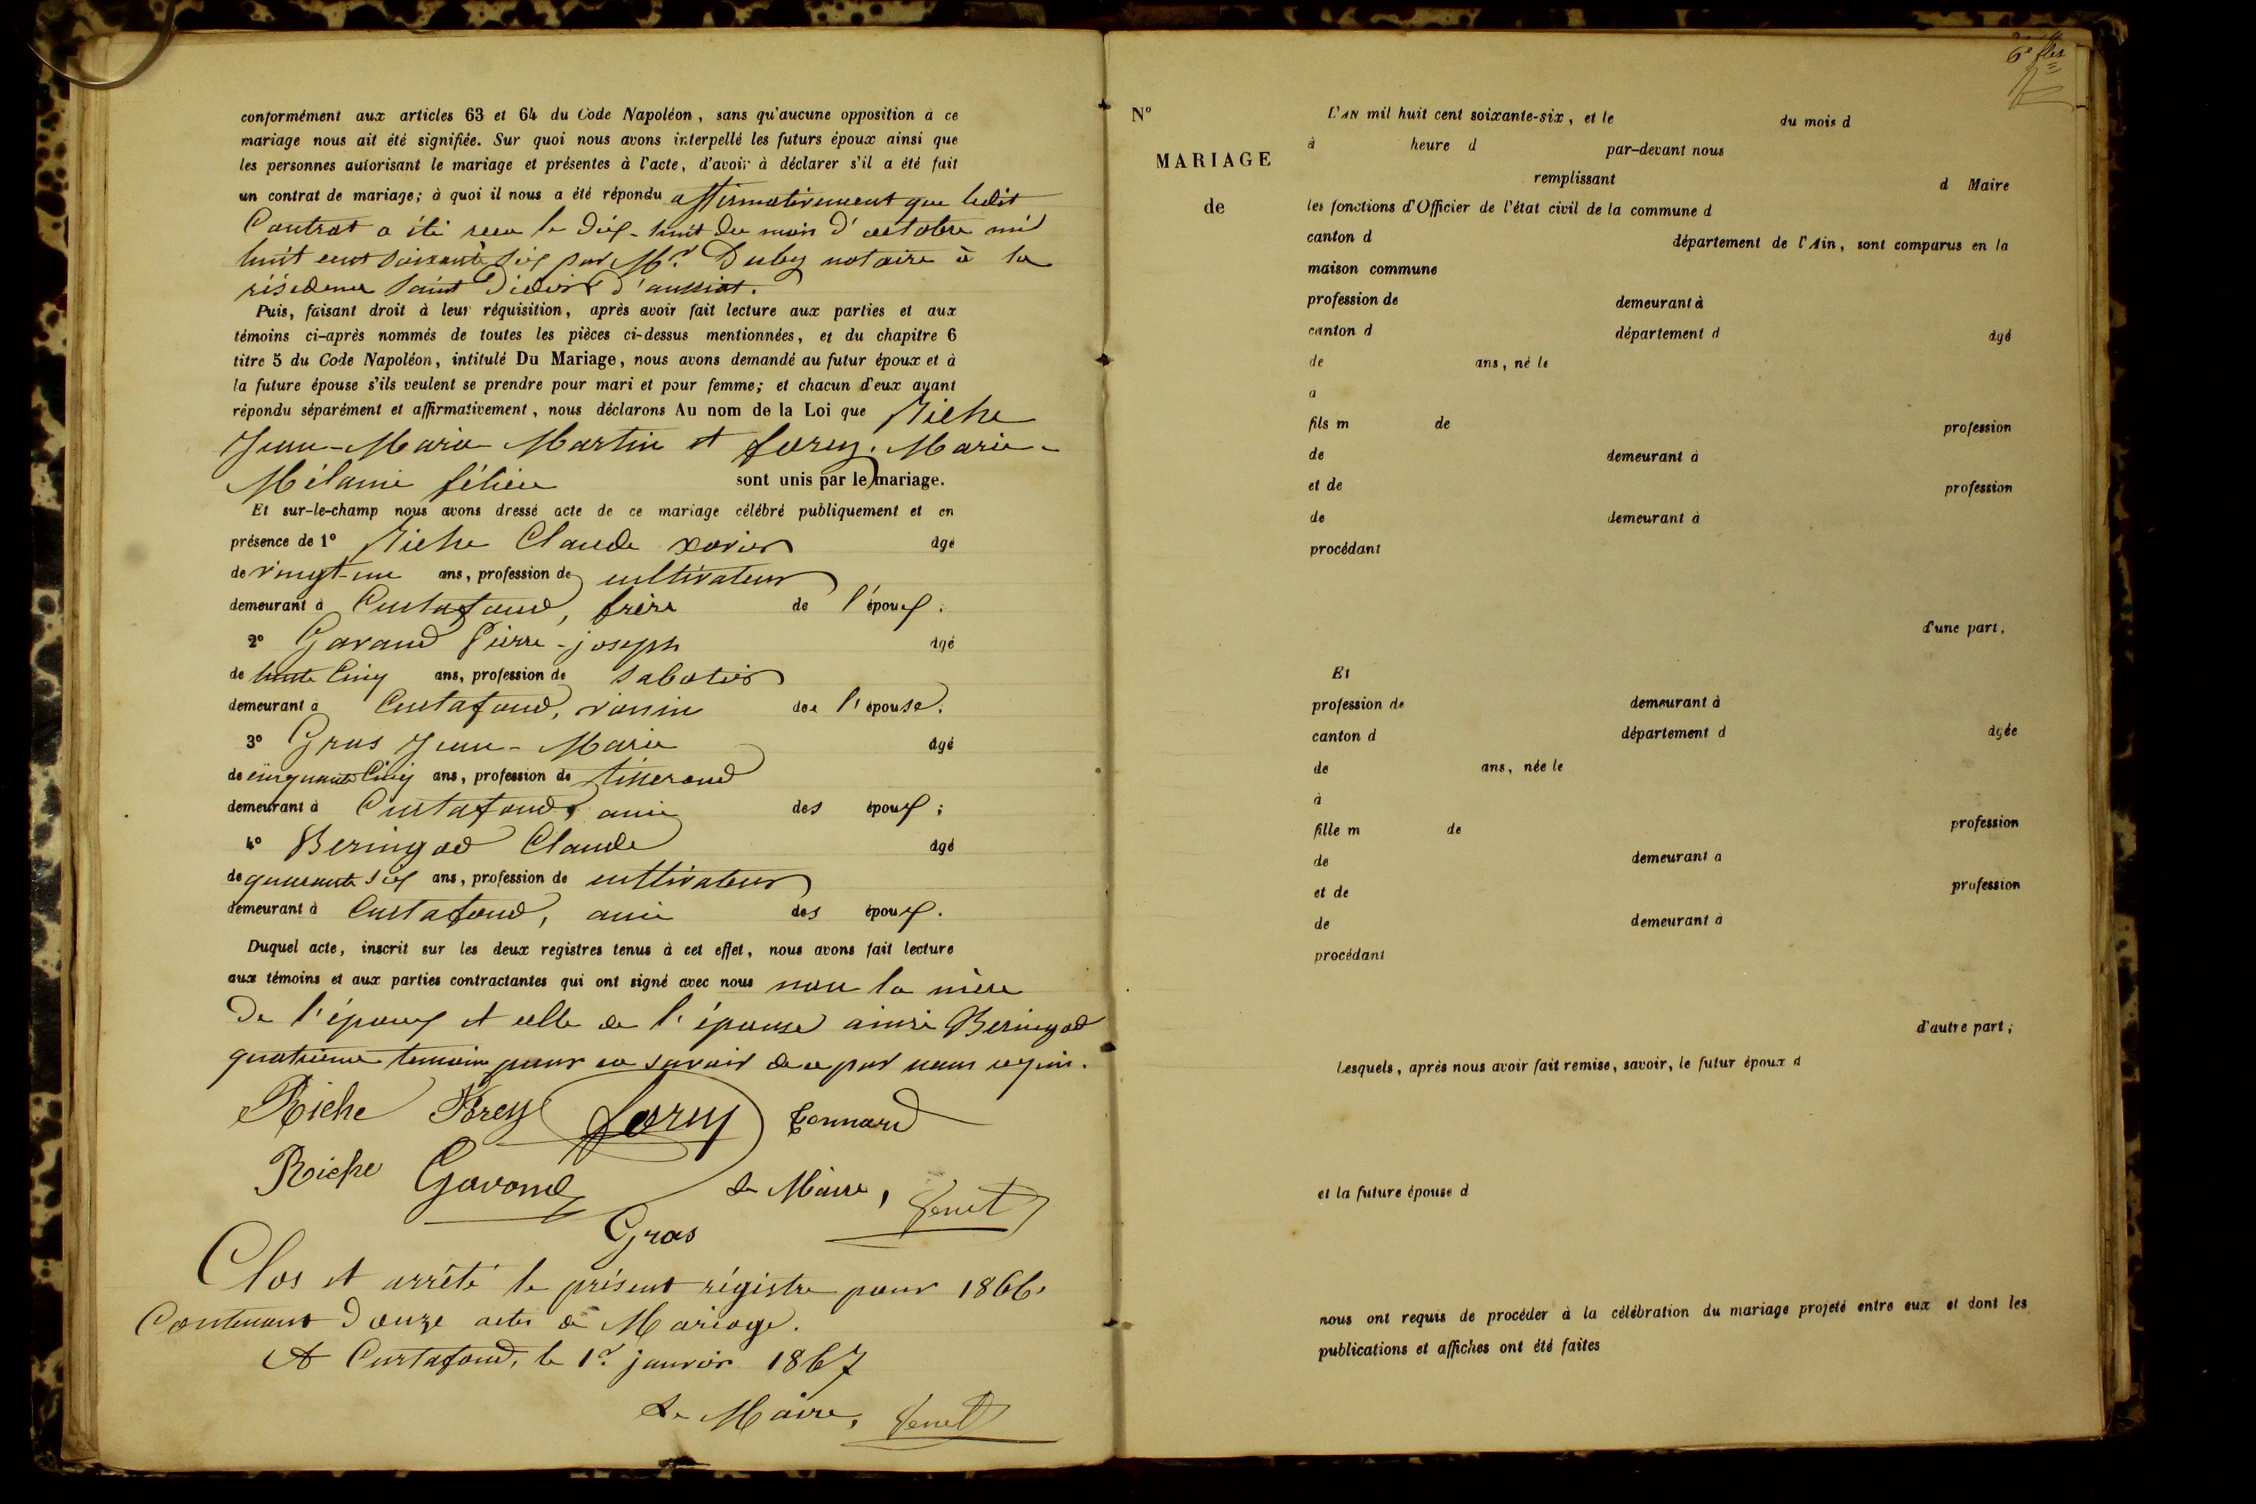 conformément aux articles 63 et 64 du Code Napoléon, sans qu'aucune opposition à ce
mariage nous ait été signifiée. Sur quoi nous avons interpellé les futurs époux ainsi que
les personnes autorisant le mariage et présentes à l'acte, d'avoir à déclarer s'il a été fait
un contrat de mariage; à quoi il nous a été répondu affirmativement que ledit
Contrat a été recu le dix-huit du mois d'octobre mil
huit cent soixante six par Mr. Duby notaire à la
résidence Saint Didier d'aussiat.
Puis, faisant droit à leur réquisition, après avoir fait lecture aux parties et aux
témoins ci-après nommés de toutes les pièces ci-dessus mentionnées, et du chapitre 6
titre 5 du Code Napoléon, intitulé Du Mariage, nous avons demandé au futur époux et à
la future épouse s'ils veulent se prendre pour mari et pour femme; et chacun d'eux ayant
répondu séparément et affirmativement, nous déclarons Au nom de la Loi que Riche
Jean-Marie Martin et Marie-
Mélanie félicie sont unis par le mariage.
Et sur-le-champ nous avons dressé acte de ce mariage célébré publiquement et en
présence de 1° Riche Claude xavier âgé
de vingt-un ans, profession de cultivateur
demeurant à Curtafond, frère de l'époux.
2° Gavand Pierre-joseph âgé
de trente cinq ans, profession de sabotier
demeurant à Curtafond, voisin de l'épouse.
3° Gras Jean-Marie âgé
de cinquante cinq ans, profession de tisserand
demeurant à Curtafond, ami des époux;
4° Beringod Claude âgé
de quarante six ans, profession de cultivateur
demeurant à Curtafond, ami des époux.
Duquel acte, inscrit sur les deux registres tenus à cet effet, nous avons fait lecture
aux témoins et aux parties contractantes qui ont signé avec nous non la mère
De l'époux et celle de l'épouse ainsi Beringod
quatrième temoin pour ne savoir de ce par nous requis.
Riche Frey Bonnard
Riche Gavand Le Maire,
Gras
Clos et arrêté le présent régistre pour 1866.
Contenant douze actes de Mariage.
A Curtafond, le 1er. janvier 1867
Le Maire,
N°
MARIAGE
de
L'AN mil huit cent soixante-six, et le du mois d
à heure d par-devant nous
remplissant d Maire
les fonctions d'Officier de l'état civil de la commune d
canton d département de l'Ain, sont comparus en la
maison commune
profession de demeurant à
canton d département d âgé
de ans, né le
à
fils m de profession
de demeurant à
et de profession
de demeurant à
procédant
d'une part.
Et
profession de demeurant à
canton d département d âgée
de ans, née le
à
fille m de profession
de demeurant à
et de profession
de demeurant à
procédant
d'autre part;
Lesquels, après nous avoir fait remise, savoir, le futur époux d
et la future épouse d
nous ont requis de procéder à la célébration du mariage projeté entre eux et dont les
publications et affiches ont été faites